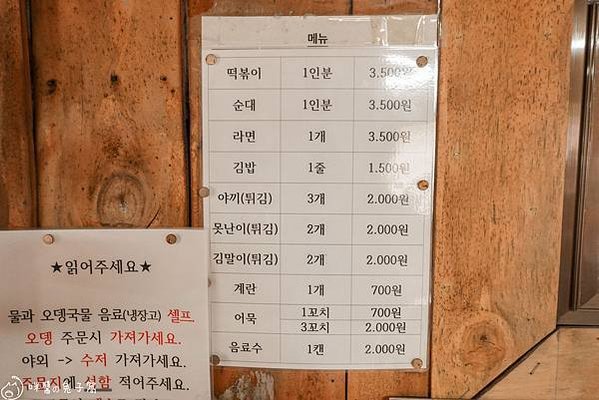 메뉴
떡볶이 1인분 3.500원
순대 1인분 3.500원
라면 1개 3.500원
김밥 1줄 1.500원
야끼(튀김) 3개 2.000원
못난이(튀김) 2개 2.000원
김말이(튀김) 2개 2.000원
계란 1개 700원
어묵 1꼬치 700원
3꼬치 2.000원
음료수 1캔 2.000원
★읽어주세요★
물과 오뎅국물 음료(냉장고) 셀프
오뎅 주문시 가져가세요.
야외 -> 수저 가져가세요.
주문지에 성함 적어주세요.